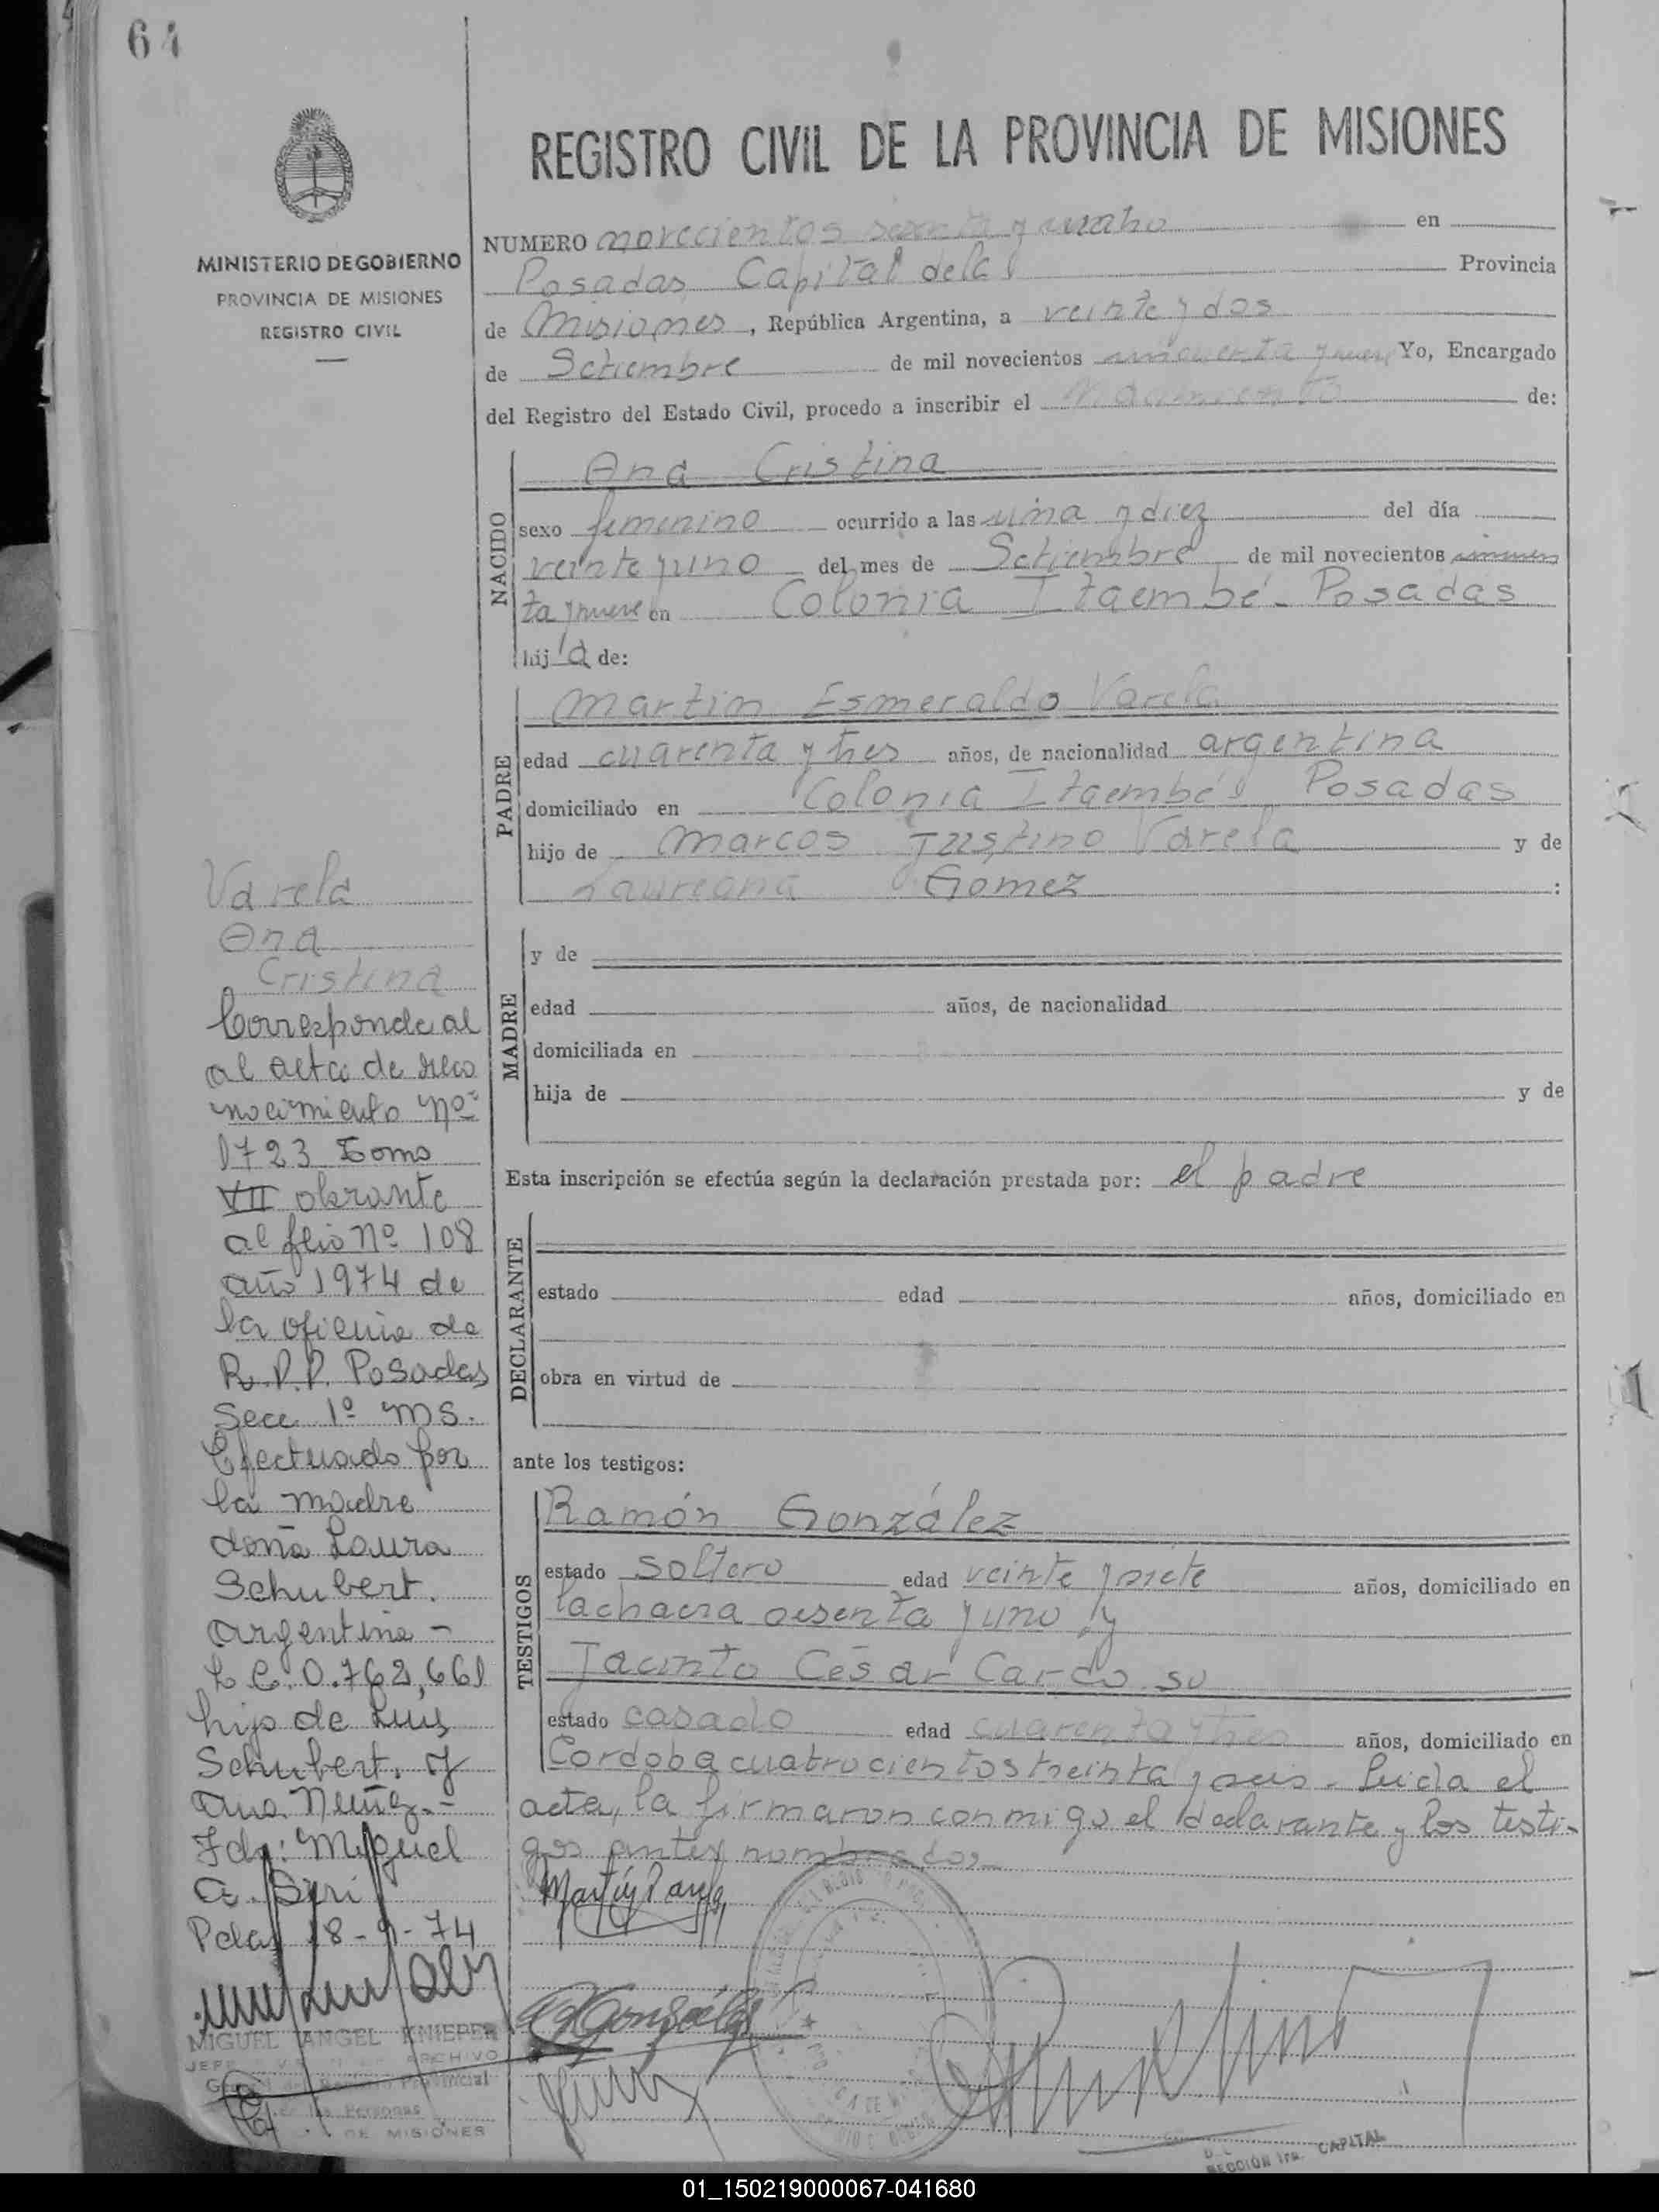 64
MINISTERIO DE GOBIERNO
PROVINCIA DE MISIONES
REGISTRO CIVIL
REGISTRO CIVIL DE LA PROVINCIA DE MISIONES
NUMERO novecientos sesenta y cuatro en
Posadas Capital de la Provincia
de Misiones, República Argentina, a veinte y dos
de Setiembre de mil novecientos cincuenta y nueve Yo, Encargado
del Registro del Estado Civil, procedo a inscribir el nacimiento de:
NACIDO
Ana Cristina
sexo femenino ocurrido a las una y diez del día
veinte y uno del mes de Setiembre de mil novecientos cincuen
ta y nueve en Colonia Itaembé - Posadas
hija de:
PADRE
Martin Esmeraldo Varela
edad cuarenta y tres años, de nacionalidad argentina
domiciliado en Colonia Itaembé Posadas
hijo de Marcos Justino Varela y de
Laureana Gomez :
MADRE
y de
edad años, de nacionalidad
domiciliada en
hija de y de
Esta inscripción se efectúa según la declaración prestada por: el padre
DECLARANTE
estado edad años, domiciliado en
obra en virtud de
ante los testigos:
TESTIGOS
Ramón González
estado soltero edad veinte y siete años, domiciliado en
la chacra sesenta y uno y
Jacinto César Cardoso
estado casado edad cuarenta y tres años, domiciliado en
Cordoba cuatrocientos treinta y seis. Leida el
acta, la firmaron conmigo el declarante y los testi-
gos antes nombrados
Varela
Ana
Cristina
Corresponde al
al acta de reco
nocimiento Nº
1723 Tomo
VII obrante
al folio Nº 108
año 1974 de
la oficina de
R.P.P. Posadas
Secc 1º MS.
Efectuado por
la madre
doña Laura
Schubert.
argentina -
L C. 0.762,661
hijo de Luis
Schubert. y
Ana Nuñez.-
Fdo: Miguel
A.
Pdas 18-9-74
MIGUEL ANGEL KNIEPER
JEFE ARCHIVO
Provincial
de las Personas
DE MISIONES
González
SECCIÓN 1ra. CAPITAL
01_150219000067-041680